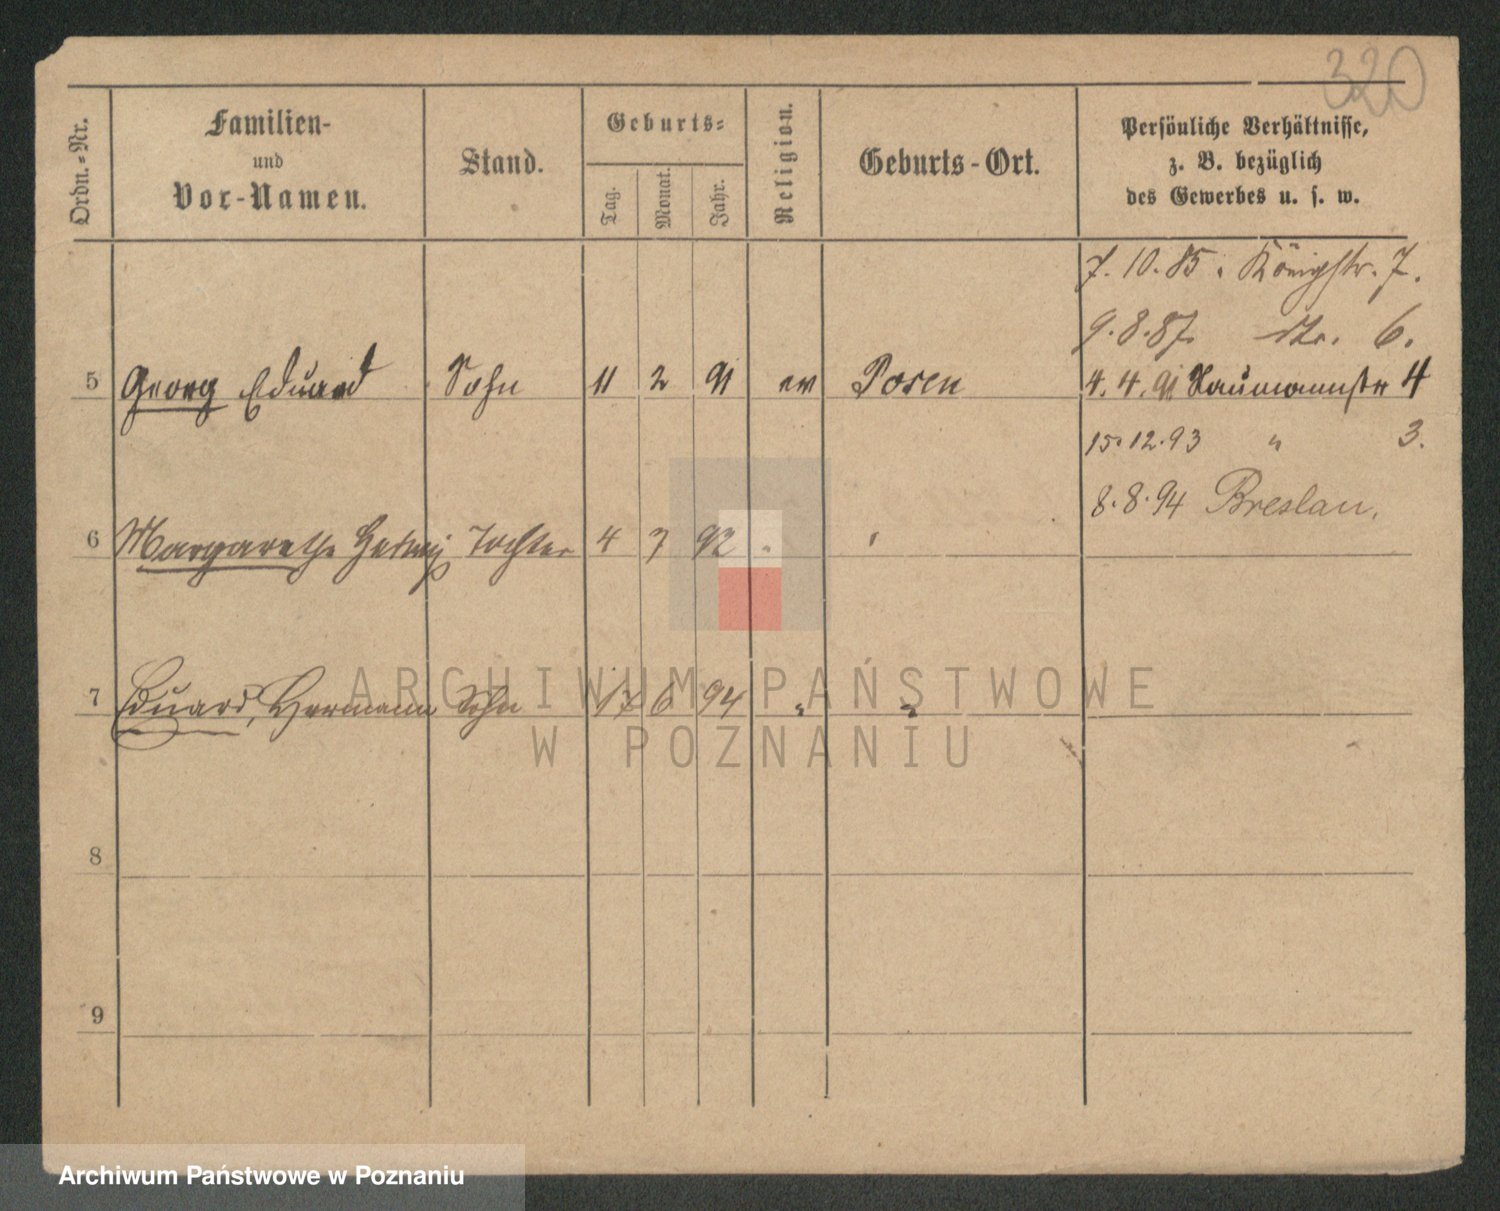 320
Ordn.-Nr.
Familien-
und
Vor-Namen.
Stand.
Geburts-
Tag.
Monat.
Jahr.
Religion.
Geburts-Ort.
Persönliche Verhältnisse,
z. B. bezüglich
des Gewerbes u. s. w.
7. 10. 85. Königstr. 7.
9. 8. 87. dto. 6.
5 Georg Eduard Sohn 11 2 91 ev Posen 4. 4. 91 Naumannstr 4
15. 12. 93 " 3.
8. 8. 94 Breslau.
6 Margarethe Hedwig Tochter 4 7 92 " "
7 Eduard, Hermann Sohn 17 6 94 " "
8
9
ARCHIWUM PAŃSTWOWE
W POZNANIU
Archiwum Państwowe w Poznaniu